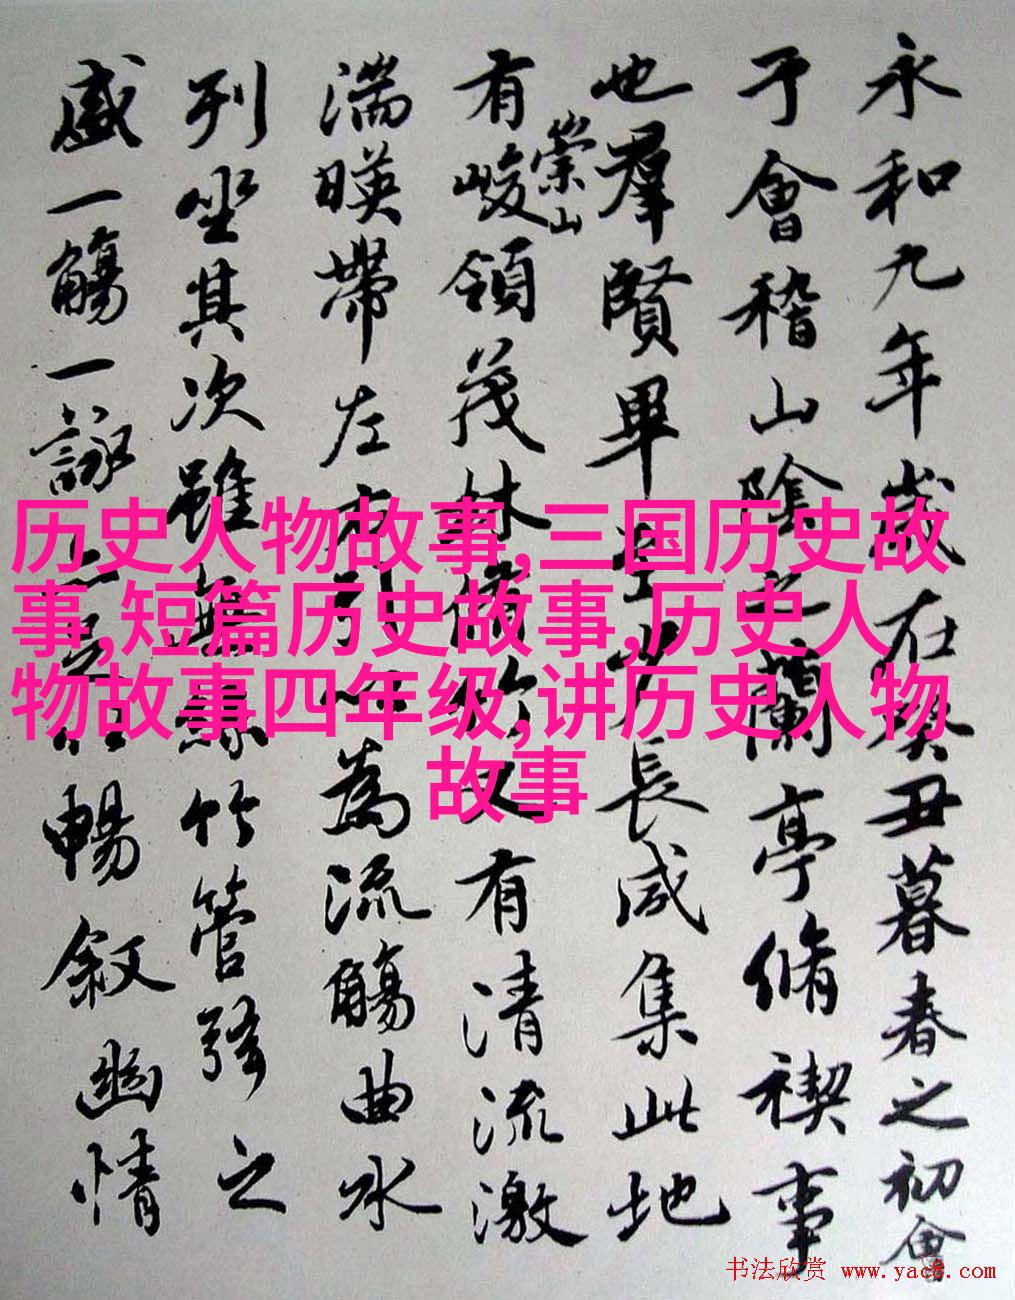 永和九年歲在癸丑暮春之初會
于會稽山陰之蘭亭脩禊事
也羣賢畢至少長咸集此地
有崇山峻領茂林脩竹又有清流激
湍暎帶左右引以為流觴曲水
列坐其次雖無絲竹管弦之
盛一觴一詠亦足以暢叙幽情
历史人物故事,三国历史故
事,短篇历史故事,历史人
物故事四年级,讲历史人物
故事
书法欣赏 www.yac8.com